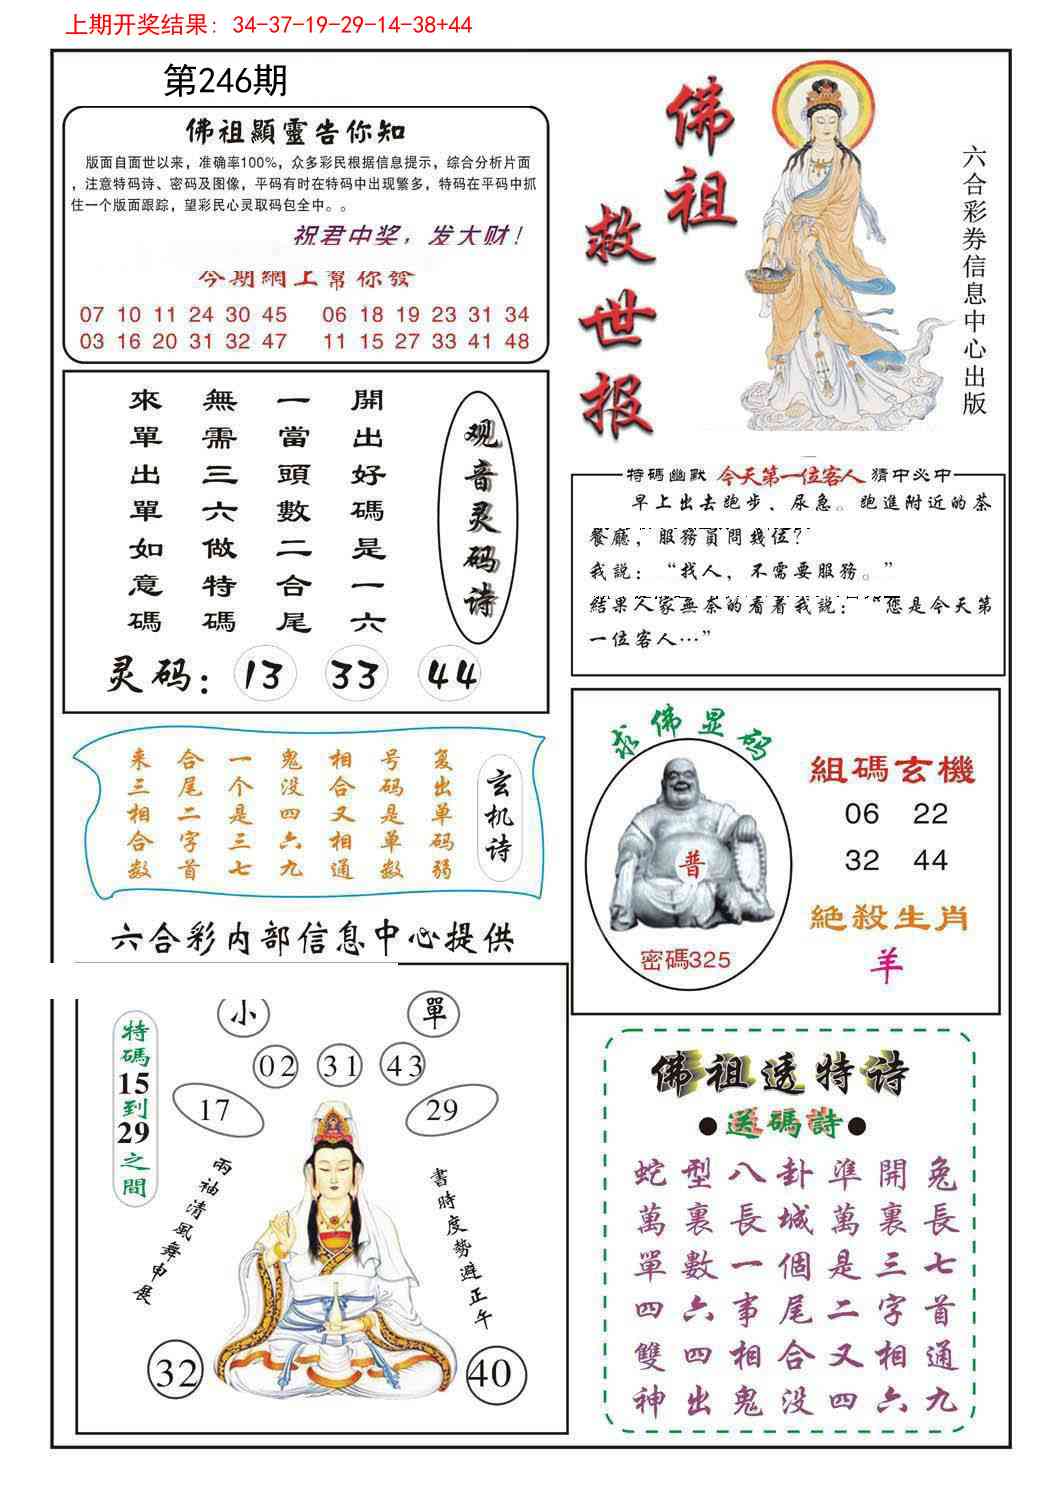 上期开奖结果: 34-37-19-29-14-38+44
第246期
佛祖顯靈告你知
版面自面世以来，准确率100%，众多彩民根据信息提示，综合分析片面
，注意特码诗、密码及图像，平码有时在特码中出现繁多，特码在平码中抓
住一个版面跟踪，望彩民心灵取码包全中。。
祝君中奖，发大财！
今期網上幫你發
07 10 11 24 30 45 06 18 19 23 31 34
03 16 20 31 32 47 11 15 27 33 41 48
佛祖
救世报
六合彩券信息中心出版
观音灵码诗
開出好碼是一六
一當頭數二合尾
無需三六做特碼
來單出單如意碼
灵码：13 33 44
特碼幽默 今天第一位客人 猜中必中
早上出去跑步、尿急。跑進附近的茶
餐廳，服務員問幾位？
我説：“找人，不需要服務。”
結果人家無奈的看着我説：“您是今天第
一位客人…”
玄机诗
复出单码弱
号码是单数
相合又相通
鬼没四六九
一个是三七
合尾二字首
来三相合数
六合彩内部信息中心提供
求佛显码
普
密碼325
組碼玄機
06 22
32 44
絕殺生肖
羊
特碼15到29之間
小 單
02 31 43
17 29
兩袖清風舞申展
書時度勢避正午
32 40
佛祖透特诗
●送碼詩●
蛇型八卦準開兔
萬裏長城萬裏長
單數一個是三七
四六事尾二字首
雙四相合又相通
神出鬼没四六九